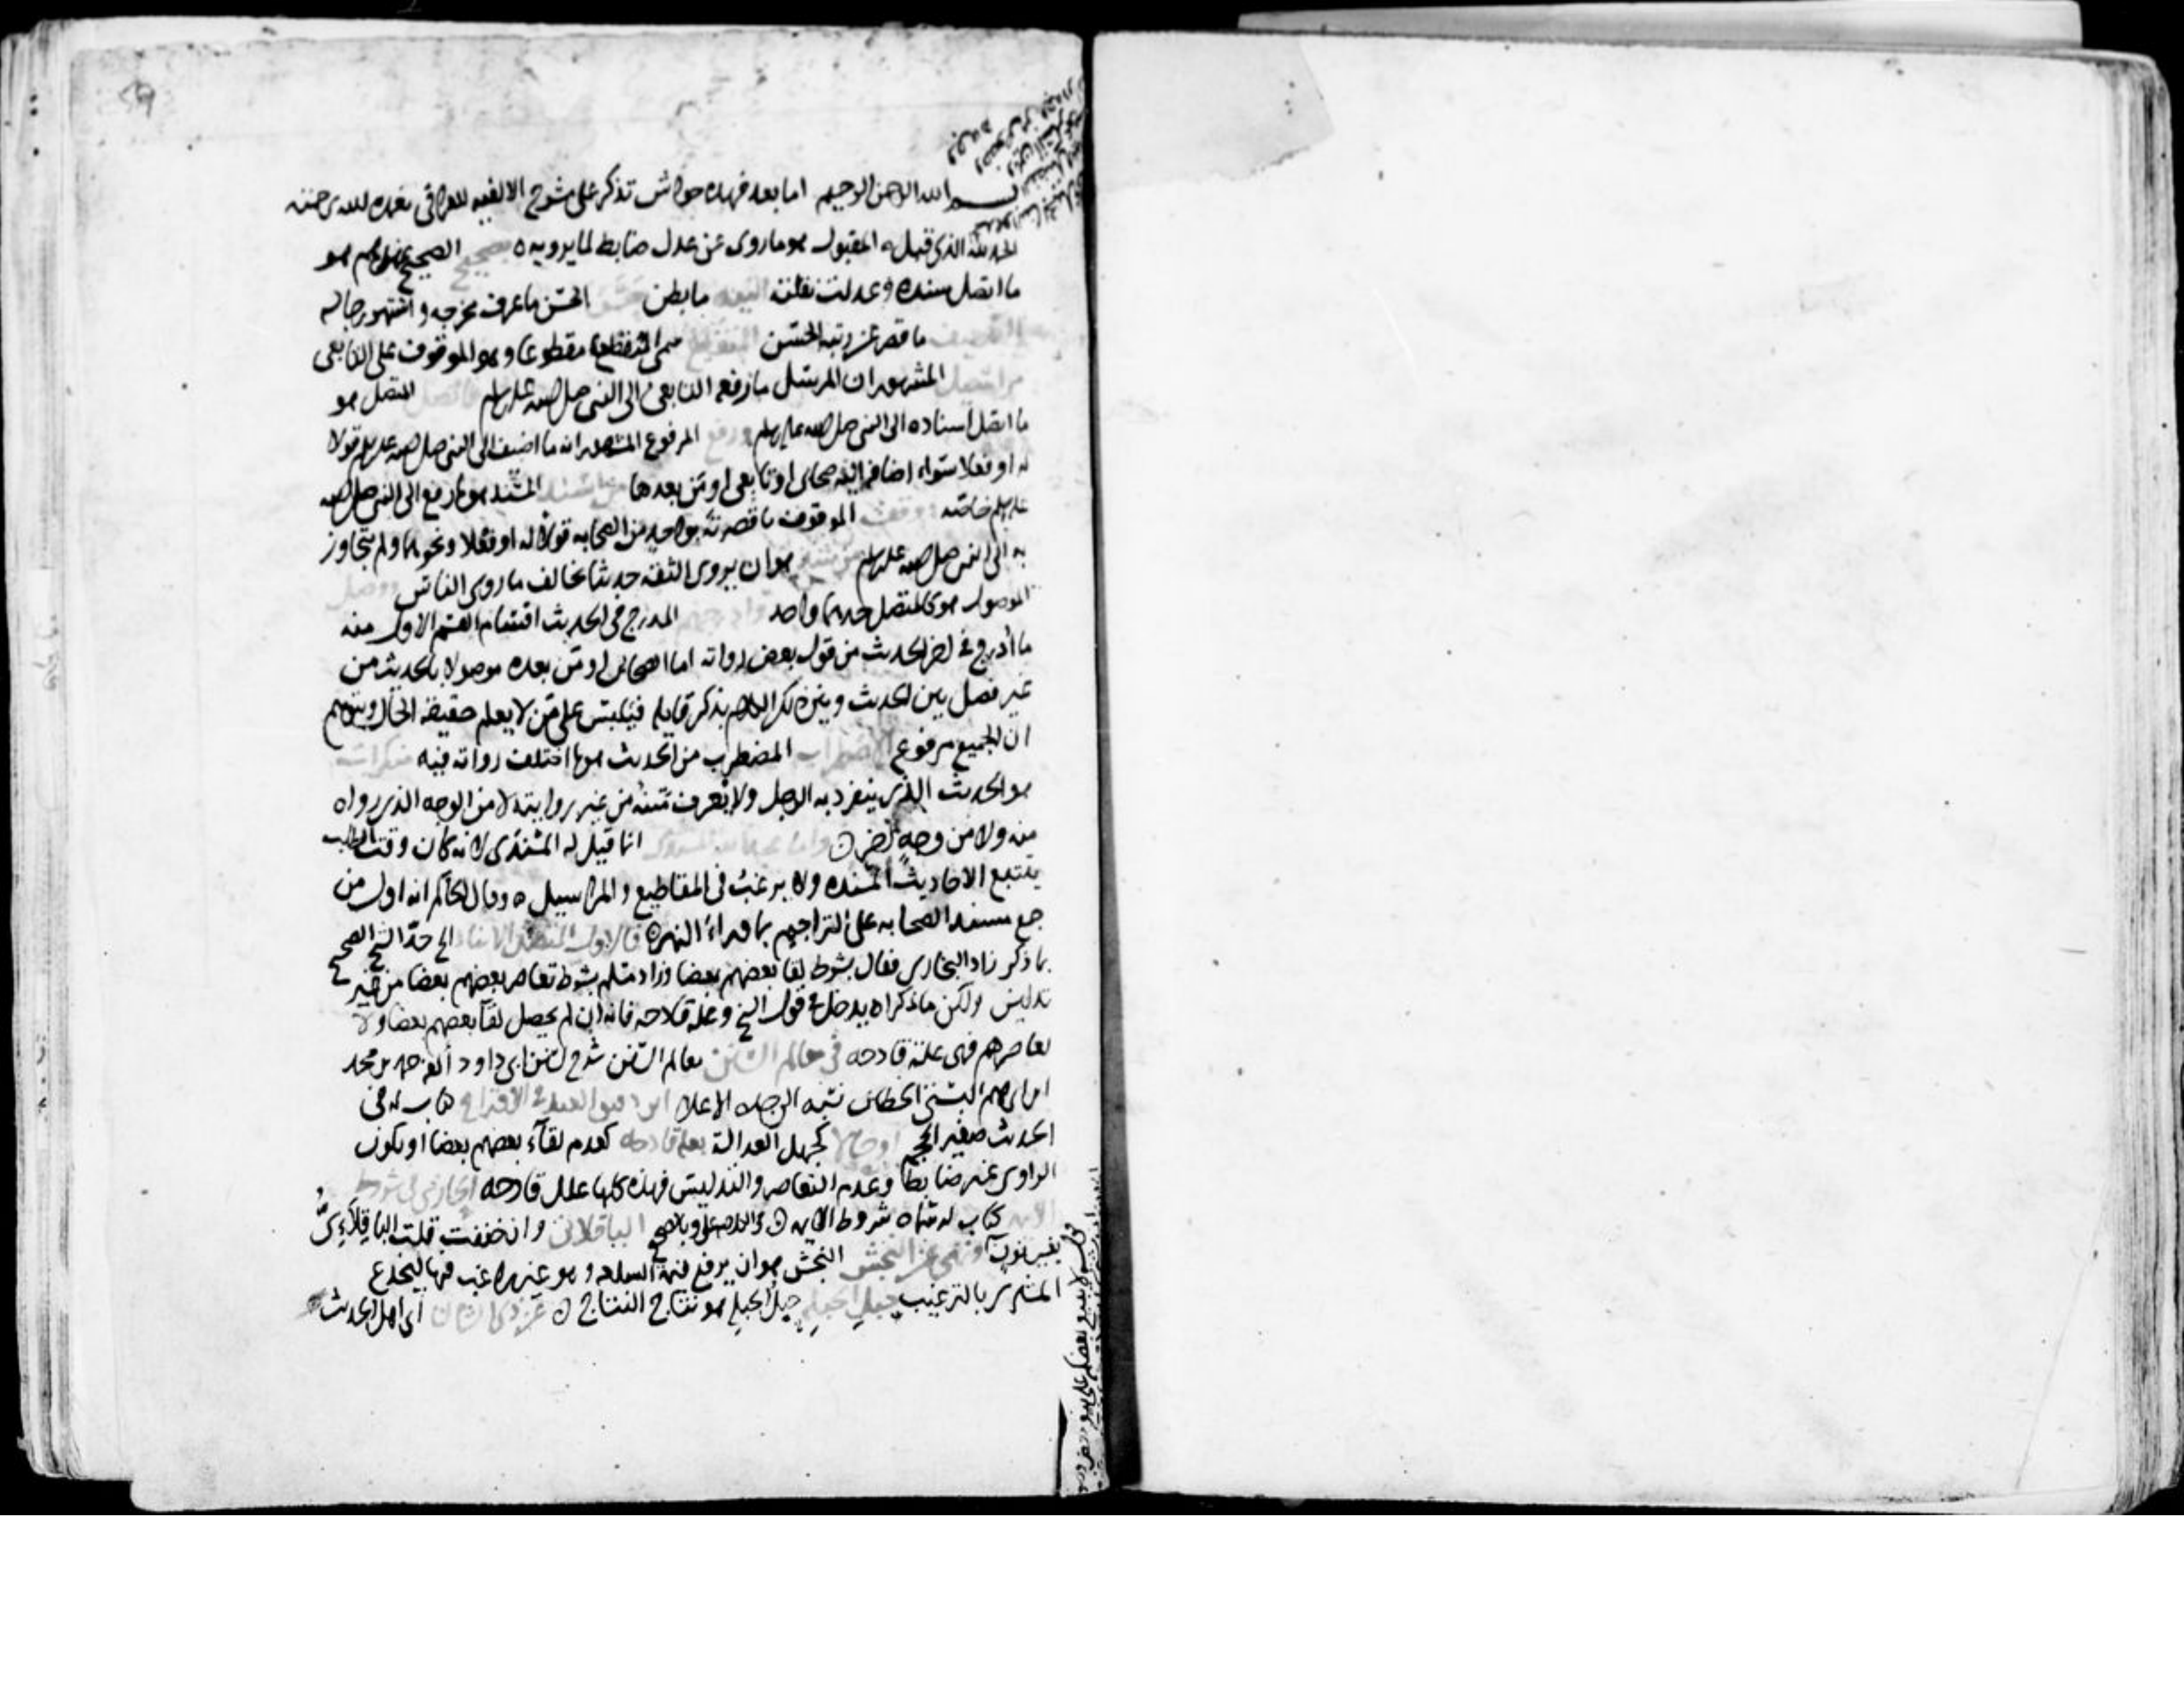 بسم الله الرحمن الرحيم اما بعد فهذه حواش تذكر على شرح الالفيه للعراقي تغمده الله برحمته
الحمد لله الذي قبل ه المقبول هو ما روى عن عدل ضابط لما يرويه ه الصحيح هو
ما اتصل سنده وعدلت نقلته ما بطن الحسن ما عرف مخرجه واشتهر رجاله
ما قصر عن رتبة الحسن مقطوعا وهو الموقوف على التابعي
مراسيل المشهور ان المرسل ما رفعه التابعي الى النبي صلى الله عليه وسلم المتصل هو
ما اتصل اسناده الى النبي صلى الله عليه وسلم ورفع المرفوع المشهور انه ما اضيف الى النبي صلى الله عليه وسلم قولا
له او فعلا سواء اضافه اليه صحابي او تابعي او من بعدها المسند هو ما رفع الى النبي صلى الله
عليه وسلم خاصة وقفت الموقوف ما قصرته بواحد من الصحابه قولا له او فعلا ونحوها ولم يتجاوز
به الى النبي صلى الله عليه وسلم هو ان يروى الثقة حديثا يخالف ما روى الناس ووصل
الموصول هو كالمتصل حدهما واحد المدرج في الحديث اقسام القسم الاول منه
ما أدرج في اخر الحديث من قول بعض رواته اما الصحابي او من بعده موصولا بالحديث من
غير فصل بين الحديث وبين ذلك الكلام بذكر قايله فيلبس على من لا يعلم حقيقة الحال ويتوهم
ان الجميع مرفوع المضطرب من الحديث هو ما اختلف رواته فيه منكرات
هو الحديث الذي ينفرد به الرجل ولا يعرف متنه من غير روايته لا من الوجه الذي رواه
منه ولا من وجه اخر انما قيل له المسندي لانه كان وقت الطلب
يتتبع الاحاديث المسنده ولا يرغب في المقاطيع والمراسيل ه وقال الحاكم انه اول من
جمع مسند الصحابه على التراجم بما وراء النهر ه فالاول المتصل الاسناد الخ حد الشيخ الصحيح
بما ذكر زاد البخاري فقال بشرط لقا بعضهم بعضا وزاد مسلم بشرط تعاصر بعضهم بعضا من غير
تدليس ولكن ما ذكراه يدخل في قول الشيخ وعلة قادحه فانه ان لم يحصل لقآ بعضهم بعضا ولا
تعاصرهم فهي علة قادحه في معالم السنن معالم السنن شرح لسنن ابي داود ألفه حمد بن محمد
ابن ابراهيم البستي الخطابي نسبه الى جده الاعلا ابن دقيق العيد في الاقتراح كتاب له في
الحديث صغير الحجم اوحالا كجهل العدالة بعلة قادحه كعدم لقآء بعضهم بعضا او يكون
الراوى غير ضابط وعدم التعاصر والتدليس فهذه كلها علل قادحه الحازمي في شروط
الايمه كتاب له سماه شروط الايمه الباقلاني وان خففت قلت الباقلاءي
بغير نون ونهي عن النجش النجش هو ان يرفع قيمة السلعه وهو غير راغب فيها ليخدع
المشتري بالترغيب حبل الحبله حبل الحبله هو نتاج النتاج عن ذي الشان اي اهل الحديث